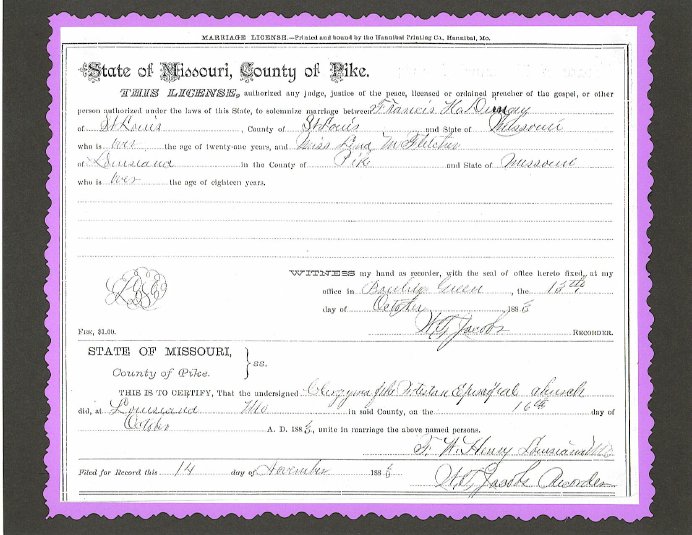 MARRIAGE LICENSE.—Printed and bound by the Hannibal Printing Co., Hannibal, Mo.
State of Missouri, County of Pike.
THIS LICENSE, authorized any judge, justice of the peace, licensed or ordained preacher of the gospel, or other
person authorized under the laws of this State, to solemnize marriage between Francis H.
of St Louis, County of St Louis and State of Missouri
who is over the age of twenty-one years, and Miss M Fletcher
of Louisiana in the County of Pike and State of Missouri
who is over the age of eighteen years.
WITNESS my hand as recorder, with the seal of office hereto fixed, at my
office in Bowling Green, the 15th
day of October 188
FEE, $1.00. Jacobs RECORDER.
STATE OF MISSOURI,
County of Pike. ss.
THIS IS TO CERTIFY, That the undersigned Clergyman of the Protestant Episcopal church
did, at Louisiana Mo in said County, on the 16th day of
October A. D. 188, unite in marriage the above named persons.
F. W. Henry Louisiana Mo
Filed for Record this 14 day of November 188
Jacobs Recorder